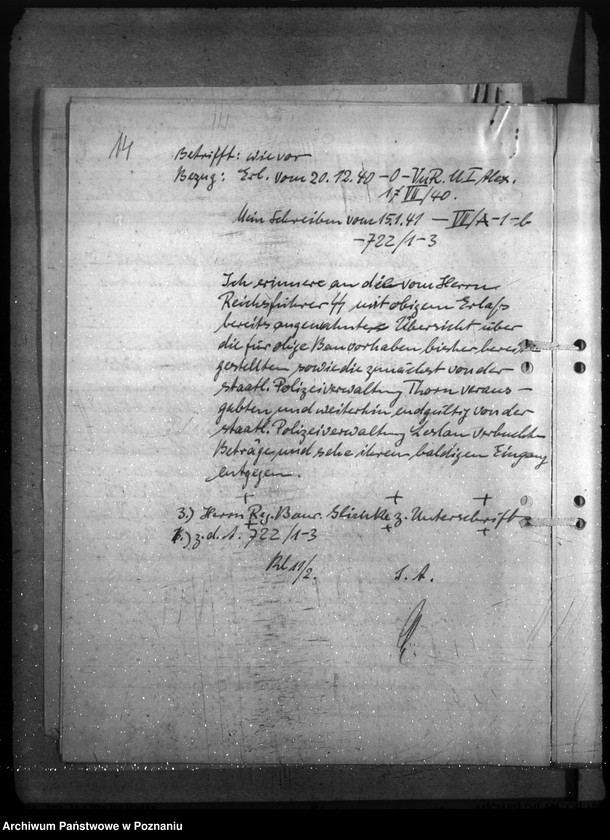 14
Betrifft: wie vor
Bezug: Erl. vom 20.12.40 -O-VuR. U I Alex.
17 VII/40.
Mein Schreiben vom 15.1.41 - VII/A-1-b
-722/1-3
Ich erinnere an die vom Herrn
Reichsführer SS mit obigem Erlaß
bereits angemahnte Übersicht über
die für obige Bauvorhaben, bisher bereit
gestellten sowie die zunächst von der
staatl. Polizeiverwaltung Thorn veraus-
gabten und weiterhin, endgültig von der
staatl. Polizeiverwaltung Leslau verbuchten
Beträge, und sehe ihrem baldigen Eingang
entgegen.
3.) Herrn Reg. Baur. z. Unterschrift
4.) z. d. A. 722/1-3
11/2. I. A.
Archiwum Państwowe w Poznaniu